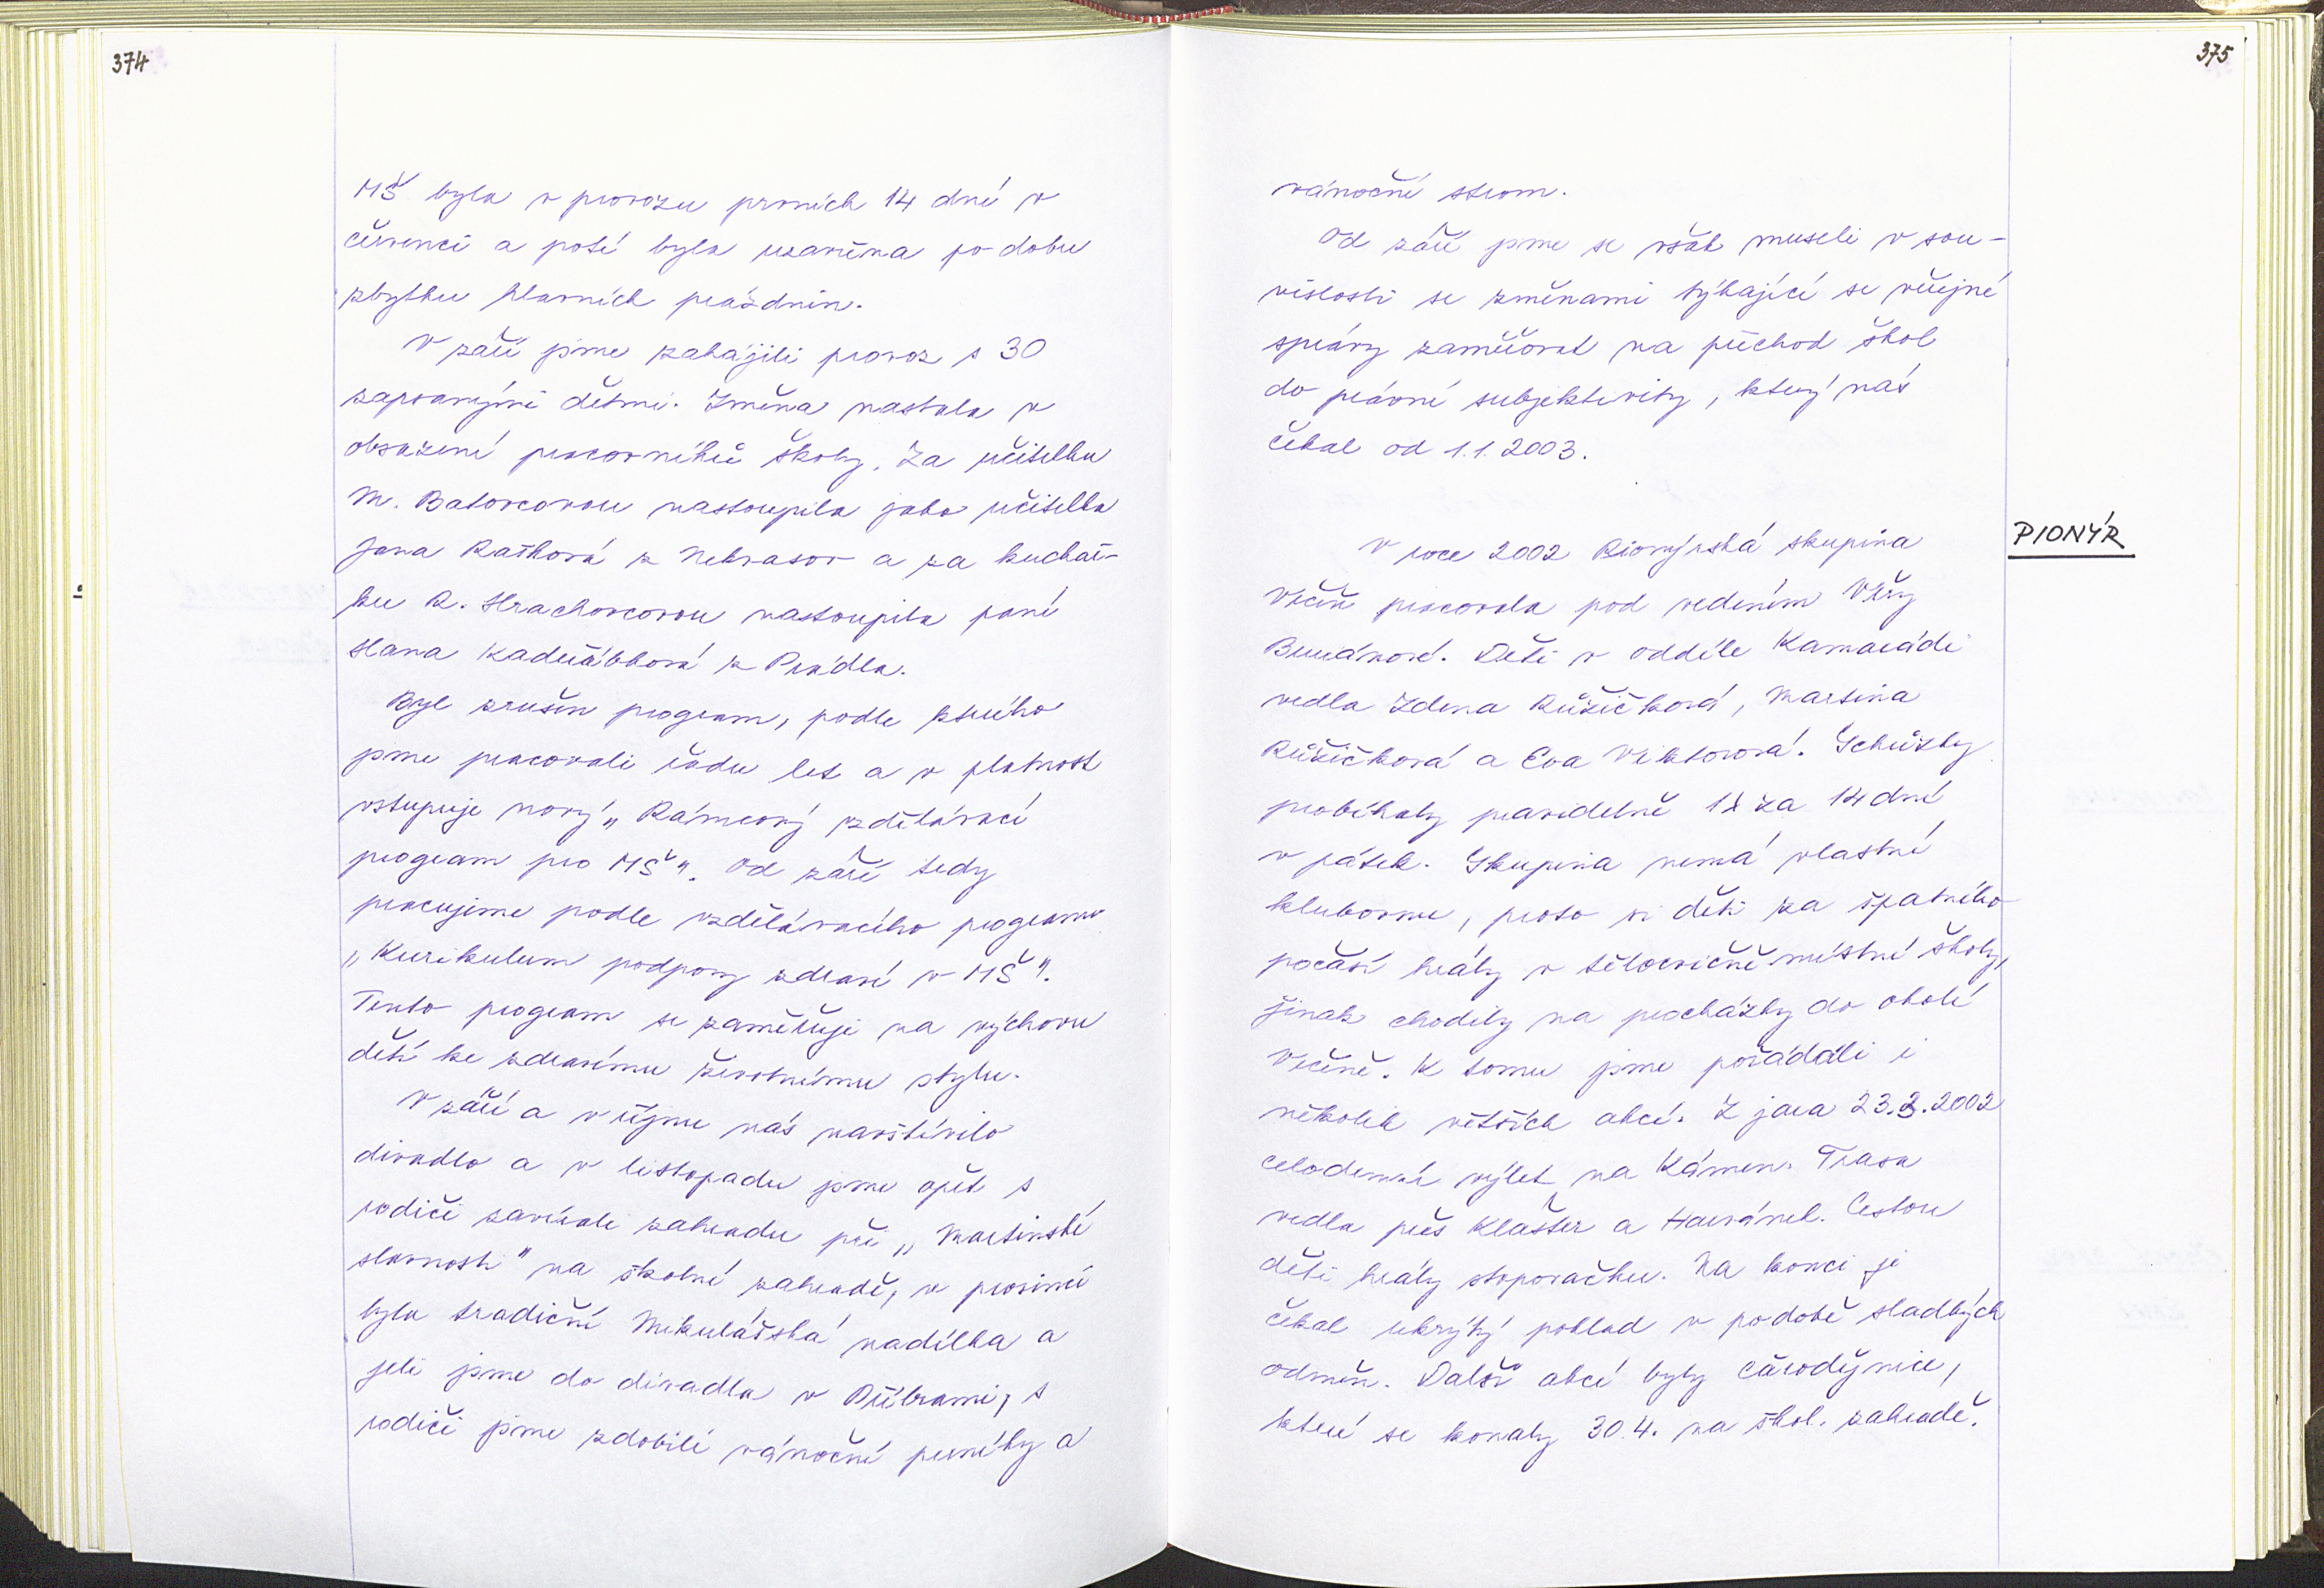 374
MŠ byla v provozu prvních 14 dní v
červenci a poté byla uzavřena po dobu
zbytku hlavních prázdnin.
V září jsme zahájili provoz s 30
zapsanými dětmi. Změna nastala v
obsazení pracovníků školy. Za učitelku
M. Batovcovou nastoupila jako učitelka
Jana Raťková z Nekvasov a za kuchař-
ku R. Hrachovcovou nastoupila paní
Hana Kadeřábková z Prádla.
Byl zrušen program, podle kterého
jsme pracovali řadu let a v platnost
vstupuje nový „Rámcový vzdělávací
program pro MŠ". Od září tedy
pracujeme podle vzdělávacího programu
„Kurikulum podpory zdraví v MŠ".
Tento program se zaměřuje na výchovu
dětí ke zdravému životnímu stylu.
V září a v říjnu nás navštívilo
divadlo a v listopadu jsme opět s
rodiči zavírali zahradu při „Martinské
slavnosti" na školní zahradě, v prosinci
byla tradiční Mikulášská nadílka a
jeli jsme do divadla v Příbrami, s
rodiči jsme zdobili vánoční perníky a
375
vánoční strom.
Od září jsme se však museli v sou-
vislosti se změnami týkající se veřejné
správy zaměřovat na přechod škol
do právní subjektivity, který nás
čekal od 1.1.2003.
PIONÝR
V roce 2002 Pionýrská skupina
Vrčeň pracovala pod vedením Věry
Buriánové. Děti v oddíle Kamarádi
vedla Zdena Růžičková, Martina
Růžičková a Eva Viktorová. Schůzky
probíhaly pravidelně 1x za 14 dní
v pátek. Skupina nemá vlastní
klubovnu, proto si děti za špatného
počasí hrály v tělocvičně místní školy,
jinak chodily na procházky do okolí
Vrčeně. K tomu jsme pořádali i
několik větších akcí. Z jara 23.3.2002
celodenní výlet na Kámen. Trasa
vedla přes Klášter a Havránek. Cestou
děti hrály stopovačku. Na konci je
čekal ukrytý poklad v podobě sladkých
odměn. Další akcí byly čarodějnice,
které se konaly 30.4. na škol. zahradě.